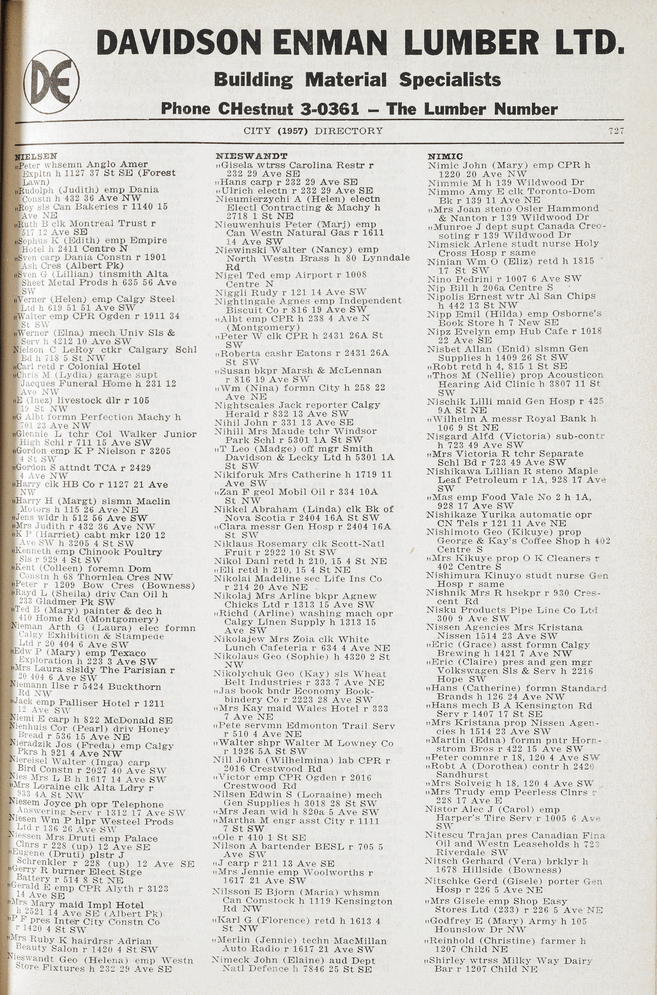 DE
DAVIDSON ENMAN LUMBER LTD.
Building Material Specialists
Phone CHestnut 3-0361 – The Lumber Number
CITY (1957) DIRECTORY 727
NIELSEN
"Peter whsemn Anglo Amer
Expltn h 1127 37 St SE (Forest
Lawn)
"Rudolph (Judith) emp Dania
Constn h 432 36 Av NW
"Roy sls Can Bakeries r 1140 15
Ave NE
"Ruth B clk Montreal Trust r
517 12 Ave SE
"Sophus K (Edith) emp Empire
Hotel h 2411 Centre N
"Sven carp Dania Constn r 1901
Ash Cres (Albert Pk)
"Sven G (Lillian) tinsmith Alta
Sheet Metal Prods h 635 56 Ave
SW
"Verner (Helen) emp Calgy Steel
Ltd h 619 51 51 Ave SW
"Walter emp CPR Ogden r 1911 34
St SW
"Werner (Elna) mech Univ Sls &
Serv h 4212 10 Ave SW
Nielson C LeRoy ctkr Calgary Schl
Bd h 718 5 St NW
"Carl retd r Colonial Hotel
"Chris M (Lydia) garage supt
Jacques Funeral Home h 231 12
Ave NW
"E (Inez) livestock dlr r 105
19 St NW
"G Albt formn Perfection Machy h
701 23 Ave NW
"Glennie L tchr Col Walker Junior
High Schl r 711 15 Ave SW
"Gordon emp K P Nielson r 3205
4 St SW
"Gordon S attndt TCA r 2429
4 Ave NW
"Harry clk HB Co r 1127 21 Ave
NW
"Harry H (Margt) slsmn Maclin
Motors h 115 26 Ave NE
"Jens wldr h 512 56 Ave SW
"Mrs Judith r 432 36 Ave NW
"K P (Harriet) cabt mkr 120 12
Ave SW h 3205 4 St SW
"Kenneth emp Chinook Poultry
Sls r 929 4 St SW
"Kent (Colleen) foremn Dom
Constn h 68 Thornlea Cres NW
"Peter r 1209 Bow Cres (Bowness)
"Rayd L (Sheila) driv Can Oil h
233 Gladmer Pk SW
"Ted B (Mary) painter & dec h
410 Home Rd (Montgomery)
Nieman Arth G (Laura) elec formn
Calgy Exhibition & Stampede
Ltd r 20 404 6 Ave SW
"Edw P (Mary) emp Texaco
Exploration h 223 3 Ave SW
"Mrs Laura slsldy The Parisian r
20 404 6 Ave SW
Niemann Ilse r 5424 Buckthorn
Rd NW
"Jack emp Palliser Hotel r 1211
12 Ave SW
Niemi E carp h 822 McDonald SE
Nienhuis Cor (Pearl) driv Honey
Bread r 536 15 Ave NE
Nieradzik Jos (Freda) emp Calgy
Pkrs h 921 4 Ave NW
Niereisel Walter (Inga) carp
Bird Constn r 2027 40 Ave SW
Nies Mrs L B h 1617 14 Ave SW
"Mrs Loraine clk Alta Ldry r
933 4A St NW
Niesem Joyce ph opr Telephone
Answering Serv r 1312 17 Ave SW
Niesen Wm P hlpr Westeel Prods
Ltd r 136 26 Ave SW
Niessen Mrs Druti emp Palace
Clnrs r 228 (up) 12 Ave SE
"Eugene (Druti) plstr J
Schrenkler r 228 (up) 12 Ave SE
"Gerry R burner Elect Stge
Battery r 514 8 St NE
"Gerald E emp CPR Alyth r 3123
14 Ave SE
"Mrs Mary maid Impl Hotel
h 2521 14 Ave SE (Albert Pk)
"P F pres Inter City Constn Co
r 1420 4 St SW
"Mrs Ruby K hairdrsr Adrian
Beauty Salon r 1420 4 St SW
Nieswandt Geo (Helena) emp Westn
Store Fixtures h 232 29 Ave SE
NIESWANDT
"Gisela wtrss Carolina Restr r
232 29 Ave SE
"Hans carp r 232 29 Ave SE
"Ulrich electn r 232 29 Ave SE
Nieumierzychi A (Helen) electn
Electl Contracting & Machy h
2718 1 St NE
Nieuwenhuis Peter (Marj) emp
Can Westn Natural Gas r 1611
14 Ave SW
Niewinski Walter (Nancy) emp
North Westn Brass h 80 Lynndale
Rd
Nigel Ted emp Airport r 1008
Centre N
Niggli Rudy r 121 14 Ave SW
Nightingale Agnes emp Independent
Biscuit Co r 816 19 Ave SW
"Albt emp CPR h 238 4 Ave N
(Montgomery)
"Peter W clk CPR h 2431 26A St
SW
"Roberta cashr Eatons r 2431 26A
St SW
"Susan bkpr Marsh & McLennan
r 816 19 Ave SW
"Wm (Nina) formn City h 258 22
Ave NE
Nightscales Jack reporter Calgary
Herald r 832 13 Ave SW
Nihil John r 331 13 Ave SE
Nihill Mrs Maude tchr Windsor
Park Schl r 5301 1A St SW
"T Leo (Madge) off mgr Smith
Davidson & Lecky Ltd h 5301 1A
St SW
Nikiforuk Mrs Catherine h 1719 11
Ave SW
"Zan F geol Mobil Oil r 334 10A
St NW
Nikkel Abraham (Linda) clk Bk of
Nova Scotia r 2404 16A St SW
"Clara messr Gen Hosp r 2404 16A
St SW
Niklaus Rosemary clk Scott-Natl
Fruit r 2922 10 St SW
Nikol Danl retd h 210, 15 4 St NE
"Eli retd h 210, 15 4 St NE
Nikolai Madeline sec Life Ins Co
r 214 20 Ave NE
Nikolaj Mrs Arline bkpr Agnew
Chicks Ltd r 1313 15 Ave SW
"Richd (Arline) washing mach opr
Calgy Linen Supply h 1313 15
Ave SW
Nikolajew Mrs Zoia clk White
Lunch Cafeteria r 634 4 Ave NE
Nikolaus Geo (Sophie) h 4320 2 St
NW
Nikolychuk Geo (Kay) sls Wheat
Belt Industries r 333 7 Ave NE
"Jas book bndr Economy Book-
bindery Co r 2223 28 Ave SW
"Mrs Kay maid Wales Hotel r 333
7 Ave NE
"Pete servmn Edmonton Trail Serv
r 510 4 Ave NE
"Walter shpr Walter M Lowney Co
r 1926 5A St SW
Nill John (Wilhelmina) lab CPR r
2016 Crestwood Rd
"Victor emp CPR Ogden r 2016
Crestwood Rd
Nilsen Edwin S (Loraaine) mech
Gen Supplies h 3018 28 St SW
"Mrs Jean wid h 820a 5 Ave SW
"Martha M engr asst City r 1111
7 St SW
"Ole r 410 1 St SE
Nilson A bartender BESL r 705 5
Ave SW
"J carp r 211 13 Ave SE
"Mrs Jennie emp Woolworths r
1617 21 Ave SW
Nilsson E Bjorn (Maria) whsmn
Can Comstock h 1119 Kensington
Rd NW
"Karl G (Florence) retd h 1613 4
St NW
"Merlin (Jennie) techn MacMillan
Auto Radio r 1617 21 Ave SW
Nimeck John (Elaine) aud Dept
Natl Defence h 7846 25 St SE
NIMIC
Nimic John (Mary) emp CPR h
1220 20 Ave NW
Nimmie M h 139 Wildwood Dr
Nimmo Amy E clk Toronto-Dom
Bk r 139 11 Ave NE
"Mrs Joan steno Osler Hammond
& Nanton r 139 Wildwood Dr
"Munroe J dept supt Canada Creo-
soting r 139 Wildwood Dr
Nimsick Arlene studt nurse Holy
Cross Hosp r same
Ninian Wm O (Eliz) retd h 1815
17 St SW
Nino Pedrini r 1007 6 Ave SW
Nip Bill h 206a Centre S
Nipolis Ernest wtr Al San Chips
h 442 13 St NW
Nipp Emil (Hilda) emp Osborne's
Book Store h 7 New SE
Nipz Evelyn emp Hub Cafe r 1018
22 Ave SE
Nisbet Allan (Enid) slsmn Gen
Supplies h 1409 26 St SW
"Robt retd h 4, 815 1 St SE
"Thos M (Nellie) prop Acousticon
Hearing Aid Clinic h 3807 11 St
SW
Nischik Lilli maid Gen Hosp r 425
9A St NE
"Wilhelm A messr Royal Bank h
106 9 St NE
Nisgard Alfd (Victoria) sub-contr
h 723 49 Ave SW
"Mrs Victoria R tchr Separate
Schl Bd r 723 49 Ave SW
Nishikawa Lillian R steno Maple
Leaf Petroleum r 1A, 928 17 Ave
SW
"Mas emp Food Vale No 2 h 1A,
928 17 Ave SW
Nishikaze Yurika automatic opr
CN Tels r 121 11 Ave NE
Nishimoto Geo (Kikuye) prop
George & Kay's Coffee Shop h 402
Centre S
"Mrs Kikuye prop O K Cleaners r
402 Centre S
Nishimura Kinuyo studt nurse Gen
Hosp r same
Nishnik Mrs R hsekpr r 930 Cres-
cent Rd
Nisku Products Pipe Line Co Ltd
300 9 Ave SW
Nissen Agencies Mrs Kristana
Nissen 1514 23 Ave SW
"Eric (Grace) asst formn Calgy
Brewing h 1421 7 Ave NW
"Eric (Claire) pres and gen mgr
Volkswagen Sls & Serv h 2216
Hope SW
"Hans (Catherine) formn Standard
Brands h 126 24 Ave NW
"Hans mech B A Kensington Rd
Serv r 1407 17 St SE
"Mrs Kristana prop Nissen Agen-
cies h 1514 23 Ave SW
"Martin (Edna) formn pntr Horn-
strom Bros r 422 15 Ave SW
"Peter comnr r 18, 120 4 Ave SW
"Robt A (Dorothea) contr h 2420
Sandhurst
"Mrs Solveig h 18, 120 4 Ave SW
"Mrs Trudy emp Peerless Clnrs r
228 17 Ave E
Nistor Alec J (Carol) emp
Harper's Tire Serv r 1005 6 Ave
SW
Nitescu Trajan pres Canadian Fina
Oil and Westn Leaseholds h 723
Riverdale SW
Nitsch Gerhard (Vera) brklyr h
1678 Hillside (Bowness)
Nitschke Gerd (Gisele) porter Gen
Hosp r 226 5 Ave NE
"Mrs Gisele emp Shop Easy
Stores Ltd (233) r 226 5 Ave NE
"Godfrey E (Mary) Army h 105
Hounslow Dr NW
"Reinhold (Christine) farmer h
1207 Child NE
"Shirley wtrss Milky Way Dairy
Bar r 1207 Child NE